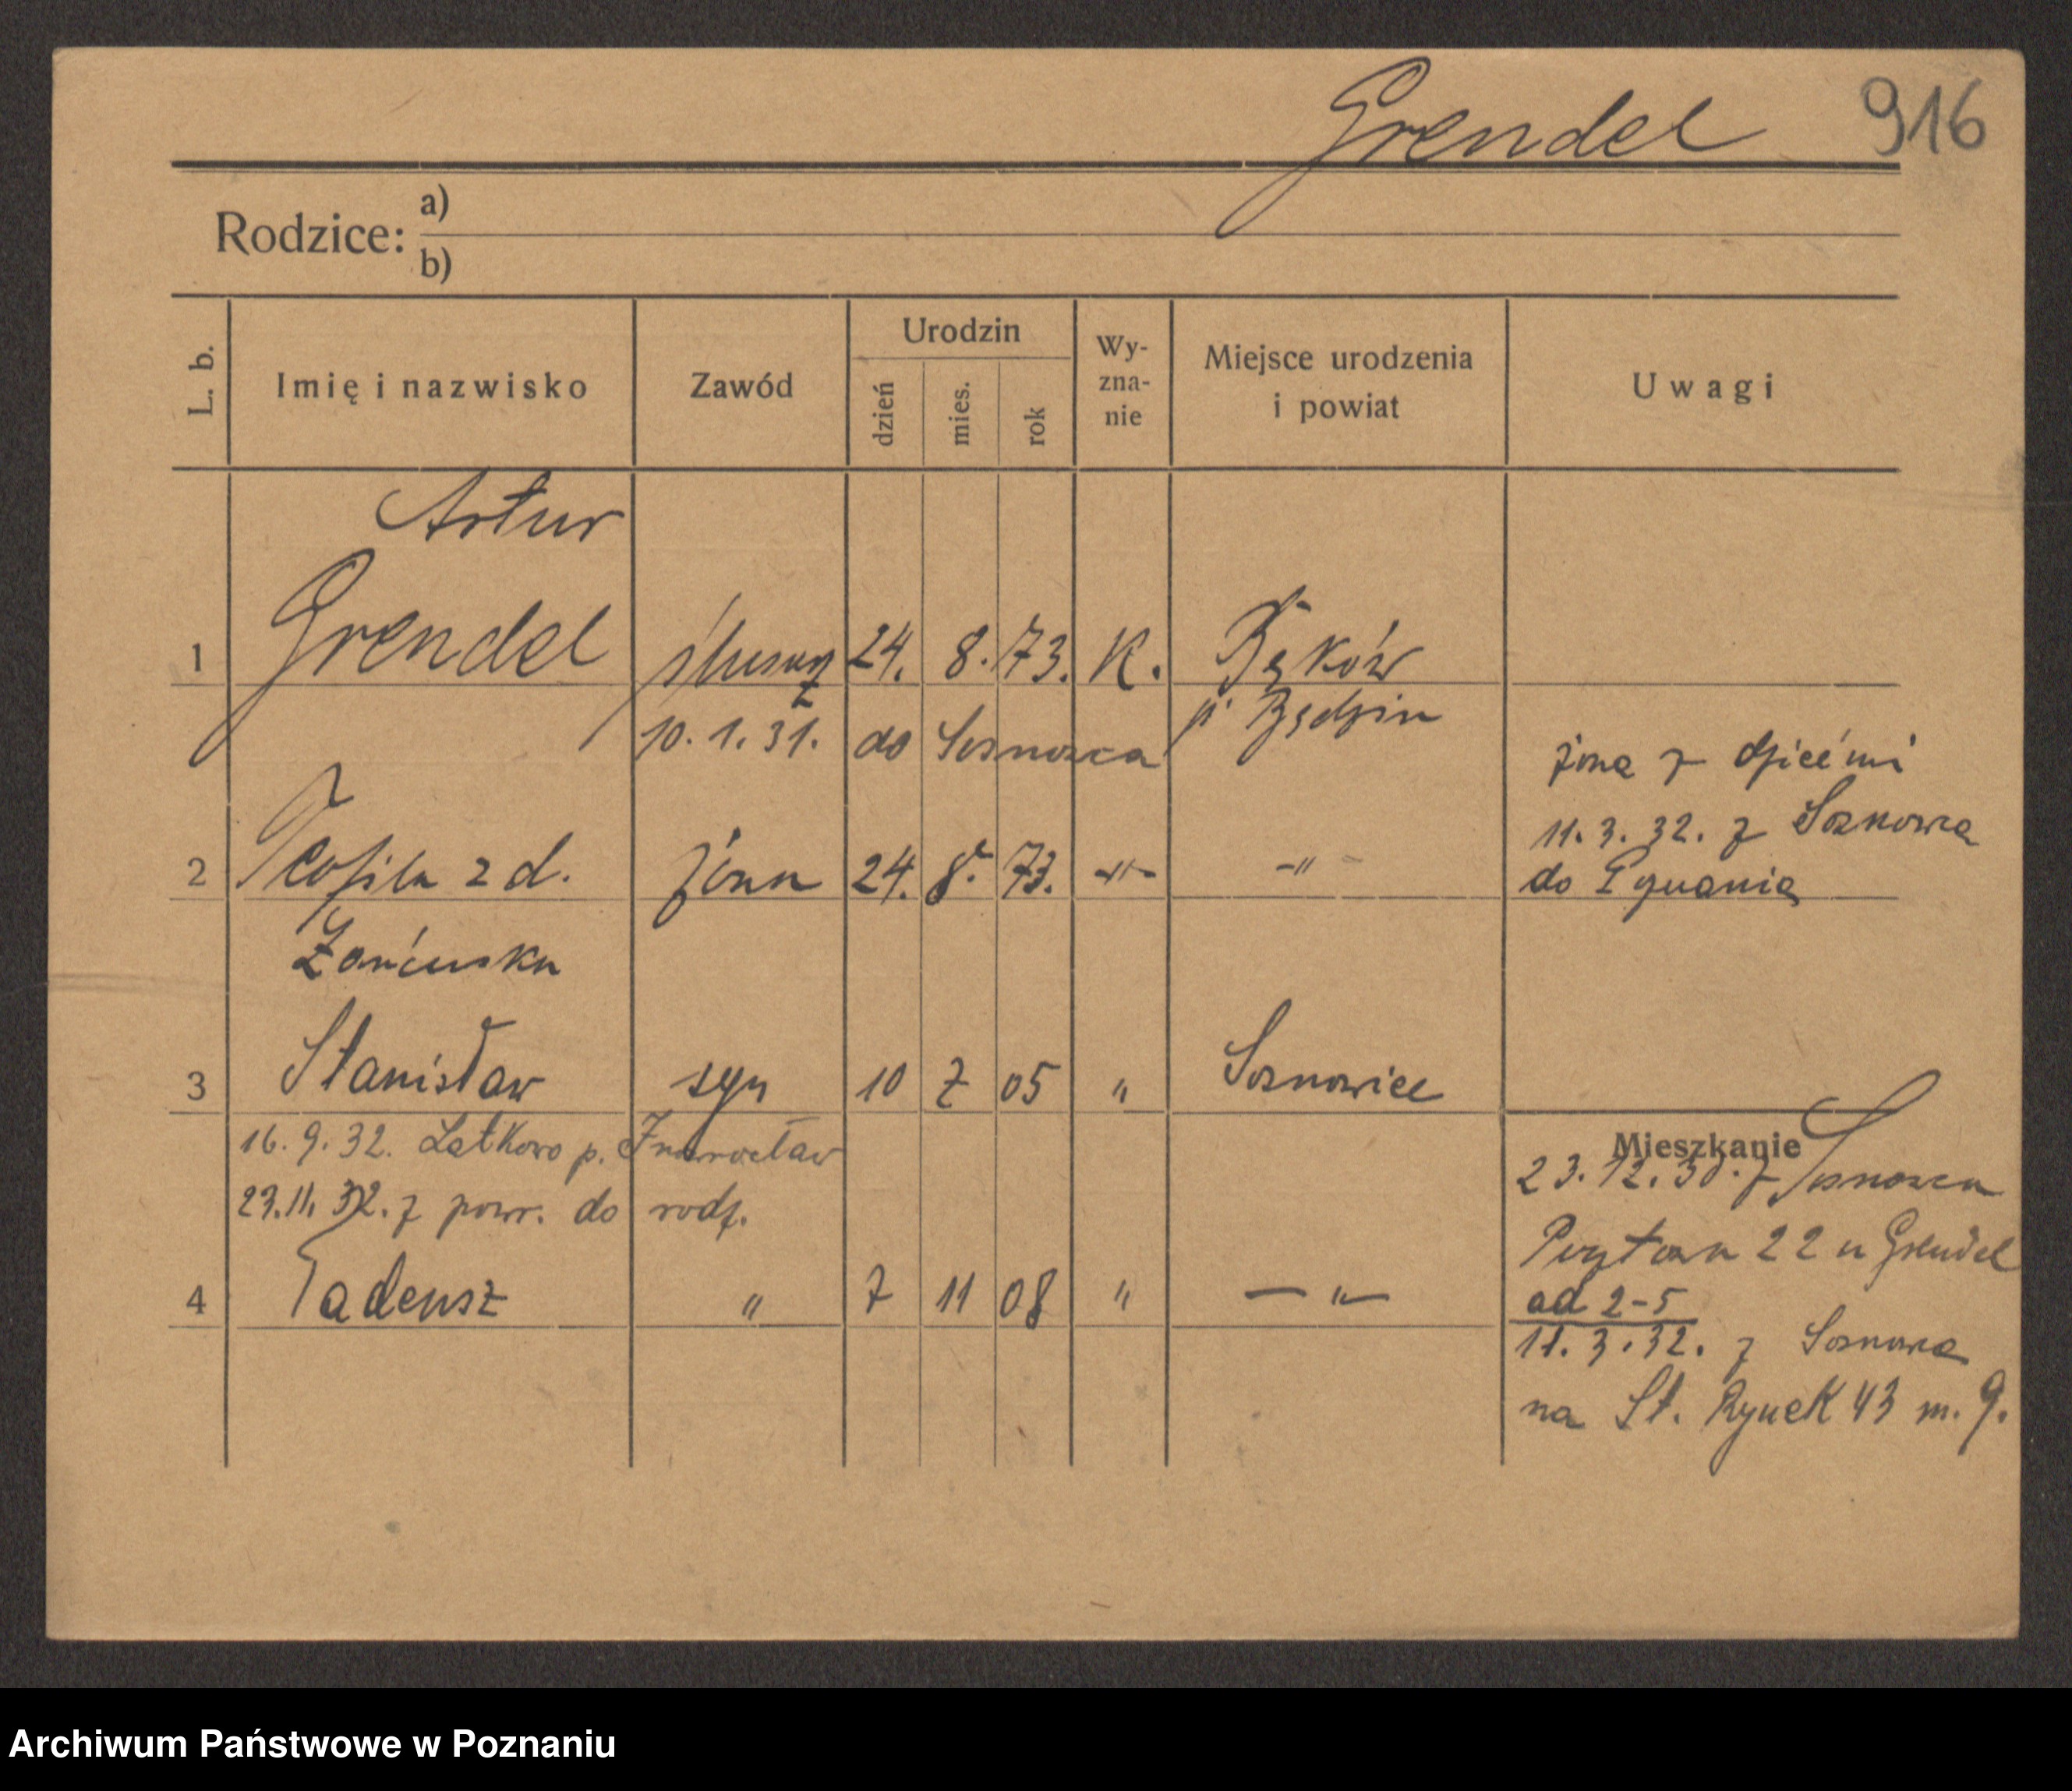 Grendel 916
Rodzice: a)
b)
L. b. Imię i nazwisko Zawód Urodzin dzień mies. rok Wy-zna-nie Miejsce urodzenia i powiat Uwagi
Artur
1 Grendel 24. 8. 73. K.
10. 1. 31. do Sosnowca p. Będzin
żona z dziećmi
11. 3. 32. z Sosnowca
2 Teofila z d. żona 24. 8. 73. -"- -"- do Poznania
3 Stanisław syn 10 7 05 " Sosnowiec
16. 9. 32. Latkowo p. Inowrocław
Mieszkanie
23. 12. 30. z Sosnowca
23. 11. 32. z powr. do rodz.
22 u Grendel
4 Tadeusz " 7 11 08 " -"-
ad 2-5
11. 3. 32. z Sosnowca
na St. Rynek 43 m. 9.
Archiwum Państwowe w Poznaniu